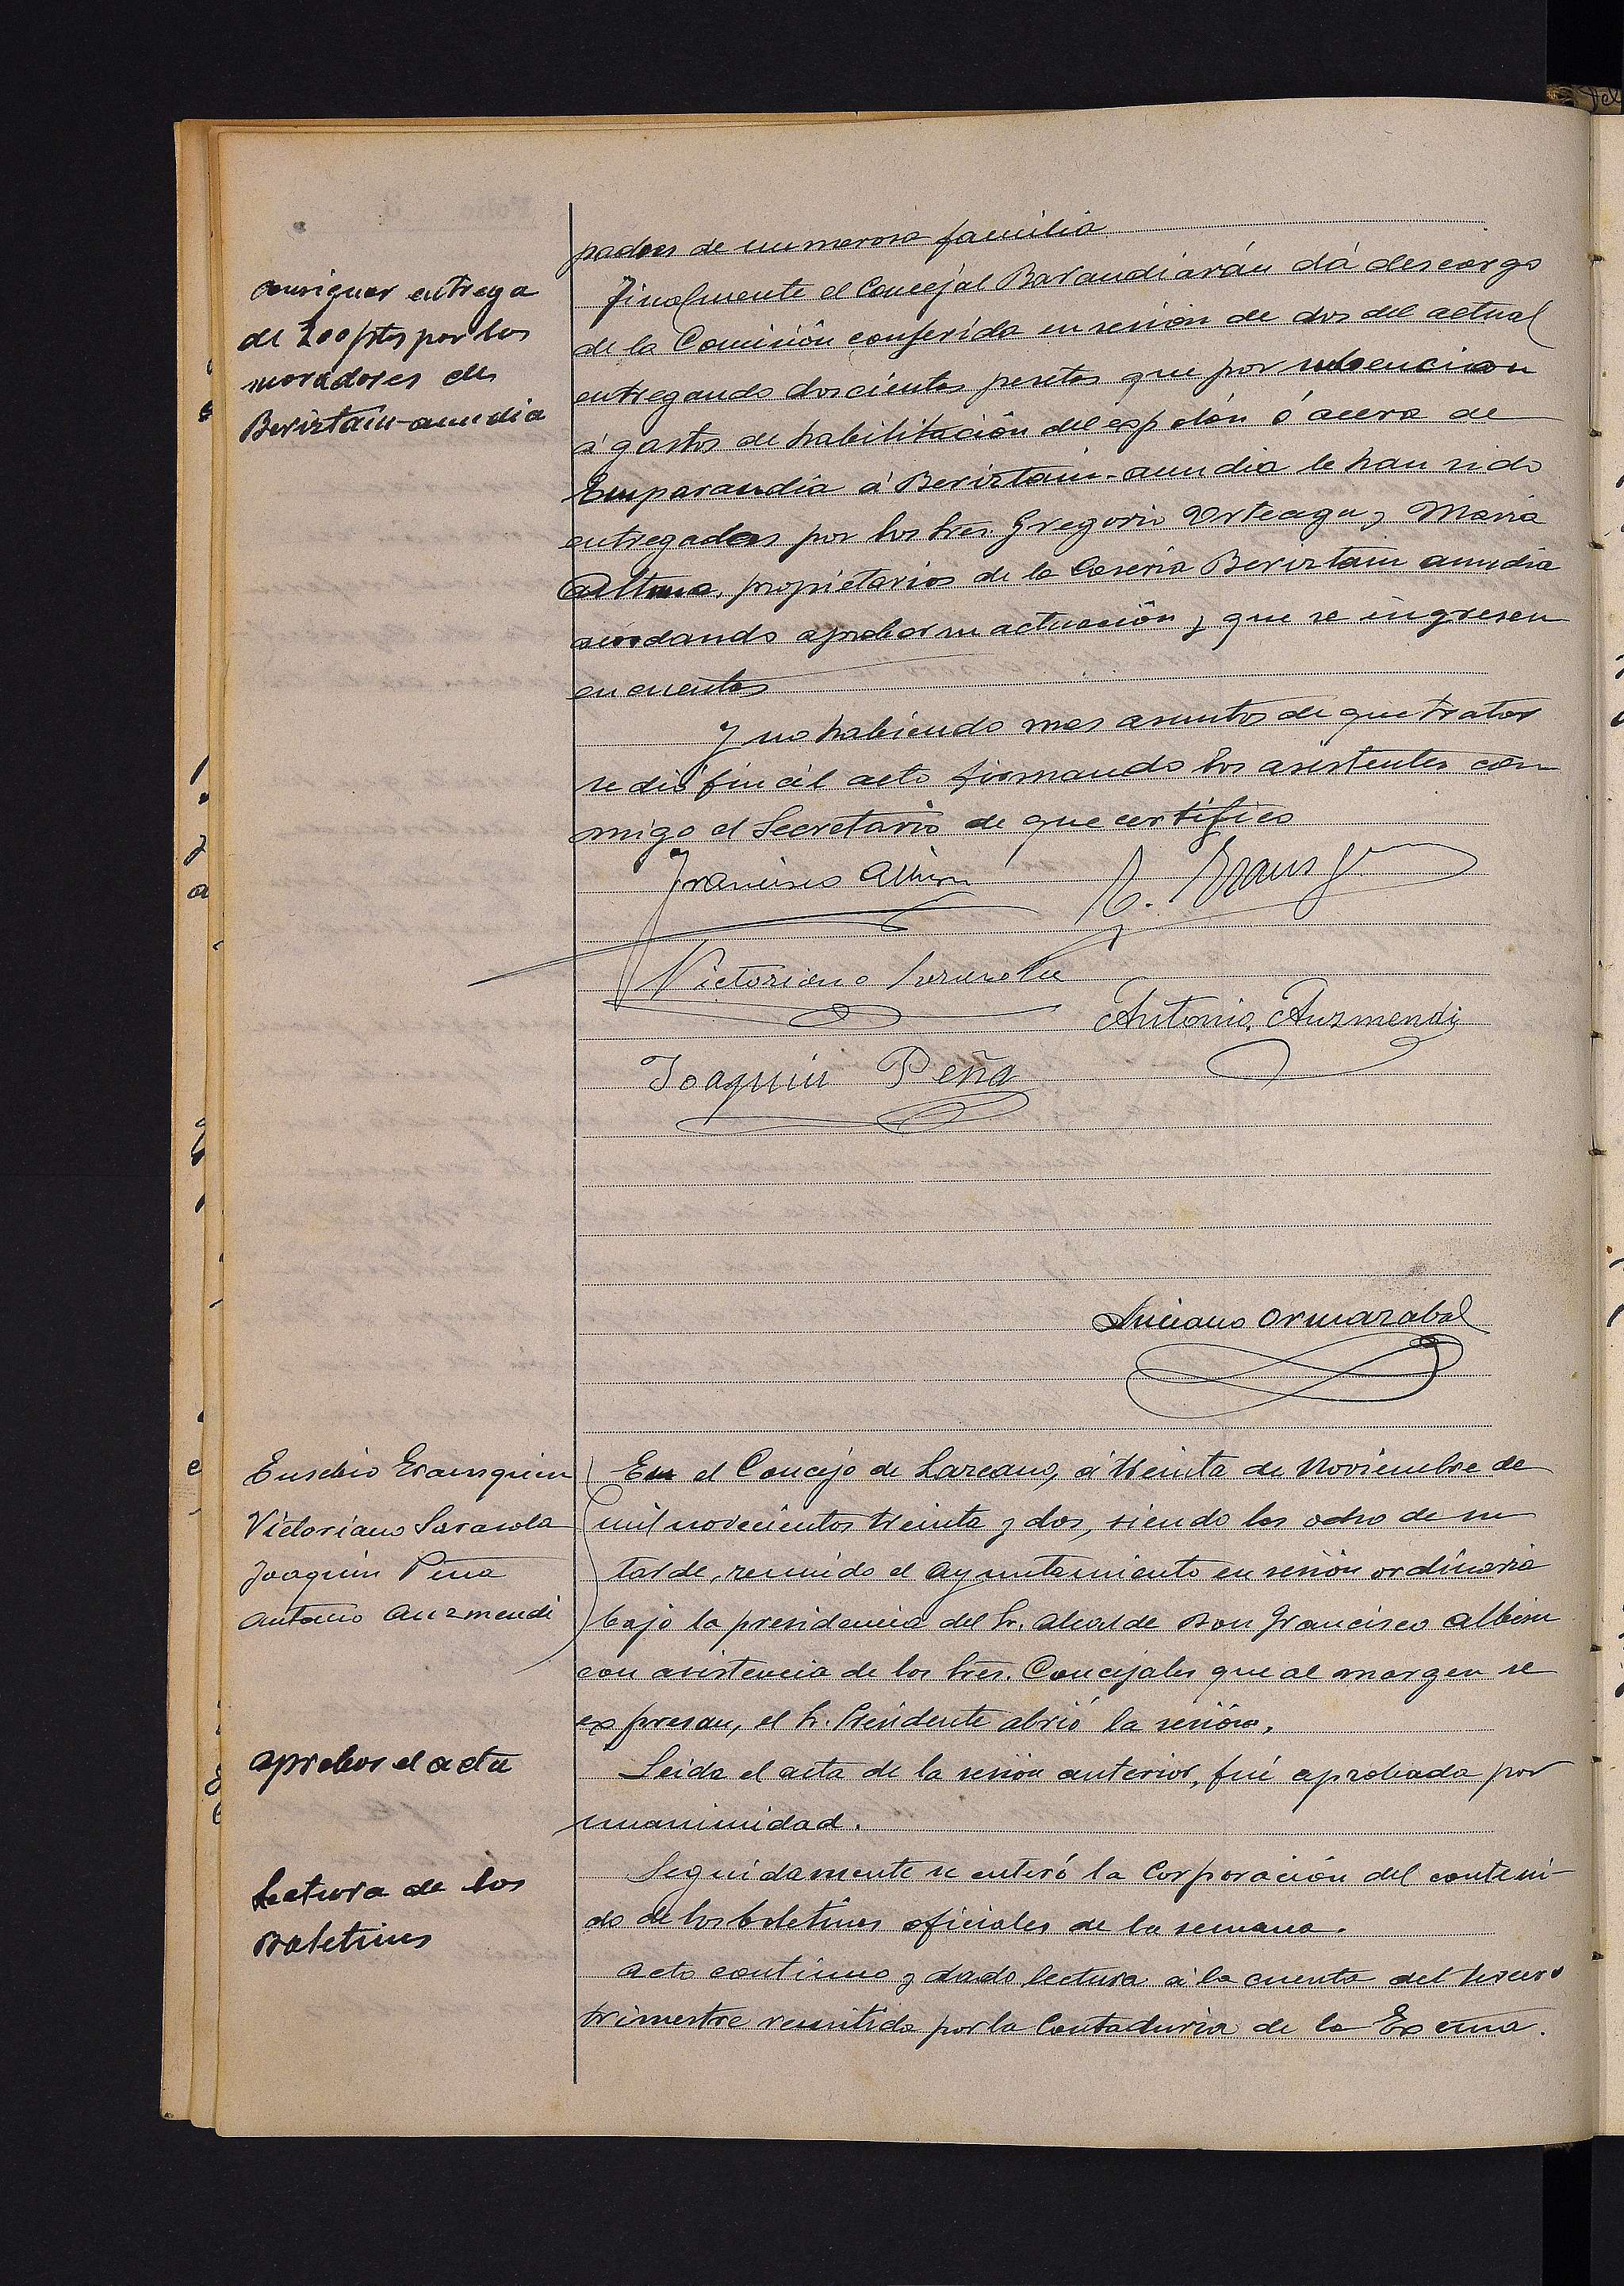 padres de numerosa familia
consignar entrega
de 200 ptas por los
moradores de
Beriztain-aundia
Finalmente el Concejal Barandiarán dá descargo
de la Comisión conferida en sesión de dos del actual
entregando doscientas pesetas que por subvencion
á gastos de habilitación del espolón ó acera de
Emparandia á Beriztain-aundia le han sido
entregadas por los Sres. Gregorio Urteaga y Maria
Altuna, propietarios de la Caseria Beriztain aundia
acordando aprobar su actuación y que se ingresen
en cuentas
Y no habiendo mas asuntos de que tratar
se dió fin al acto firmando los asistentes con
migo el Secretario de que certifico
Francisco Albisu
E. Erausqu
Victoriano Sarasola
Antonio Auzmendi
Joaquin Peña
Luciano Ormazabal
Eusebio Erausquin
Victoriano Sarasola
Joaquin Peña
Antonio Auzmendi
En el Concejo de Lazcano, á treinta de Noviembre de
mil novecientos treinta y dos, siendo las ocho de su
tarde, reunido el Ayuntamiento en sesión ordinaria
bajo la presidencia del Sr. Alcalde Don Francisco Albisu
con asistencia de los Sres. Concejales que al margen se
expresan, el Sr. Presidente abrió la sesión.
aprobar el acta
Leida el acta de la sesión anterior, fué aprobada por
unanimidad.
Lectura de los
Boletines
Seguidamente se enteró la Corporación del conteni-
do de los boletines oficiales de la semana.
Acto continuo y dado lectura á la cuenta del tercer
trimestre remitida por la Contaduria de la Excma.